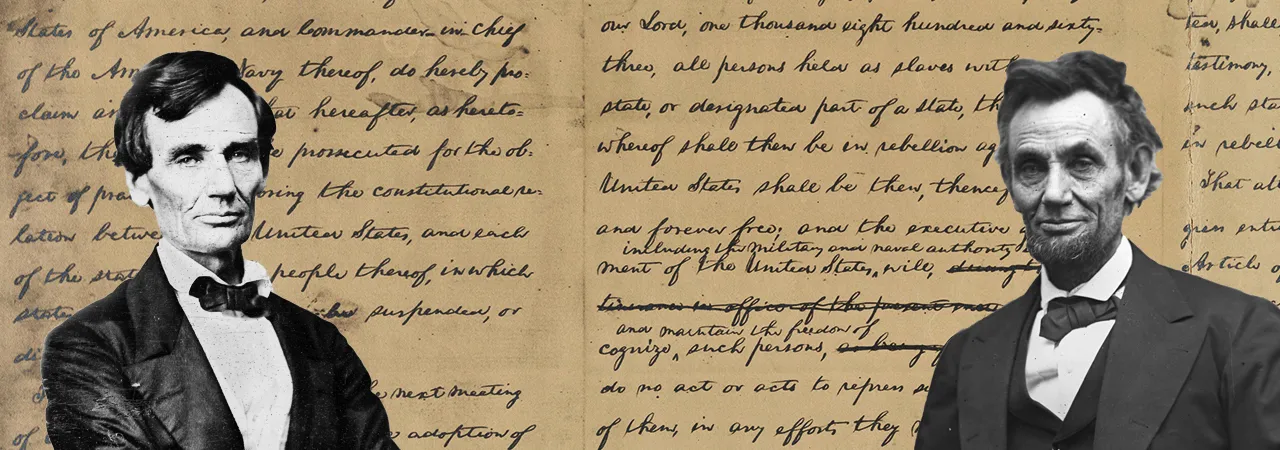 States of America, and Commander-in-Chief
of the Am Navy thereof, do hereby pro-
claim an at hereafter, as hereto=
fore, th e prosecuted for the ob-
ject of pra oring the constitutional re-
lation betwe United States, and each
of the stat people thereof, in which
states suspended, or
di
e next meeting
of adoption of
our Lord, one thousand eight hundred and sixty-
three, all persons held as slaves with
state, or designated part of a state, th
whereof shall then be in rebellion ag
United States shall be then, thence
and forever free; and the executive
including the military and naval authority
ment of the United States, will,
tinuance in office of the present
and maintain the freedom of
cognize, such persons,
do no act or acts to repress
of them, in any efforts they
ted, shall
testimony,
such sta
in rebell
That att
gress enti
Article